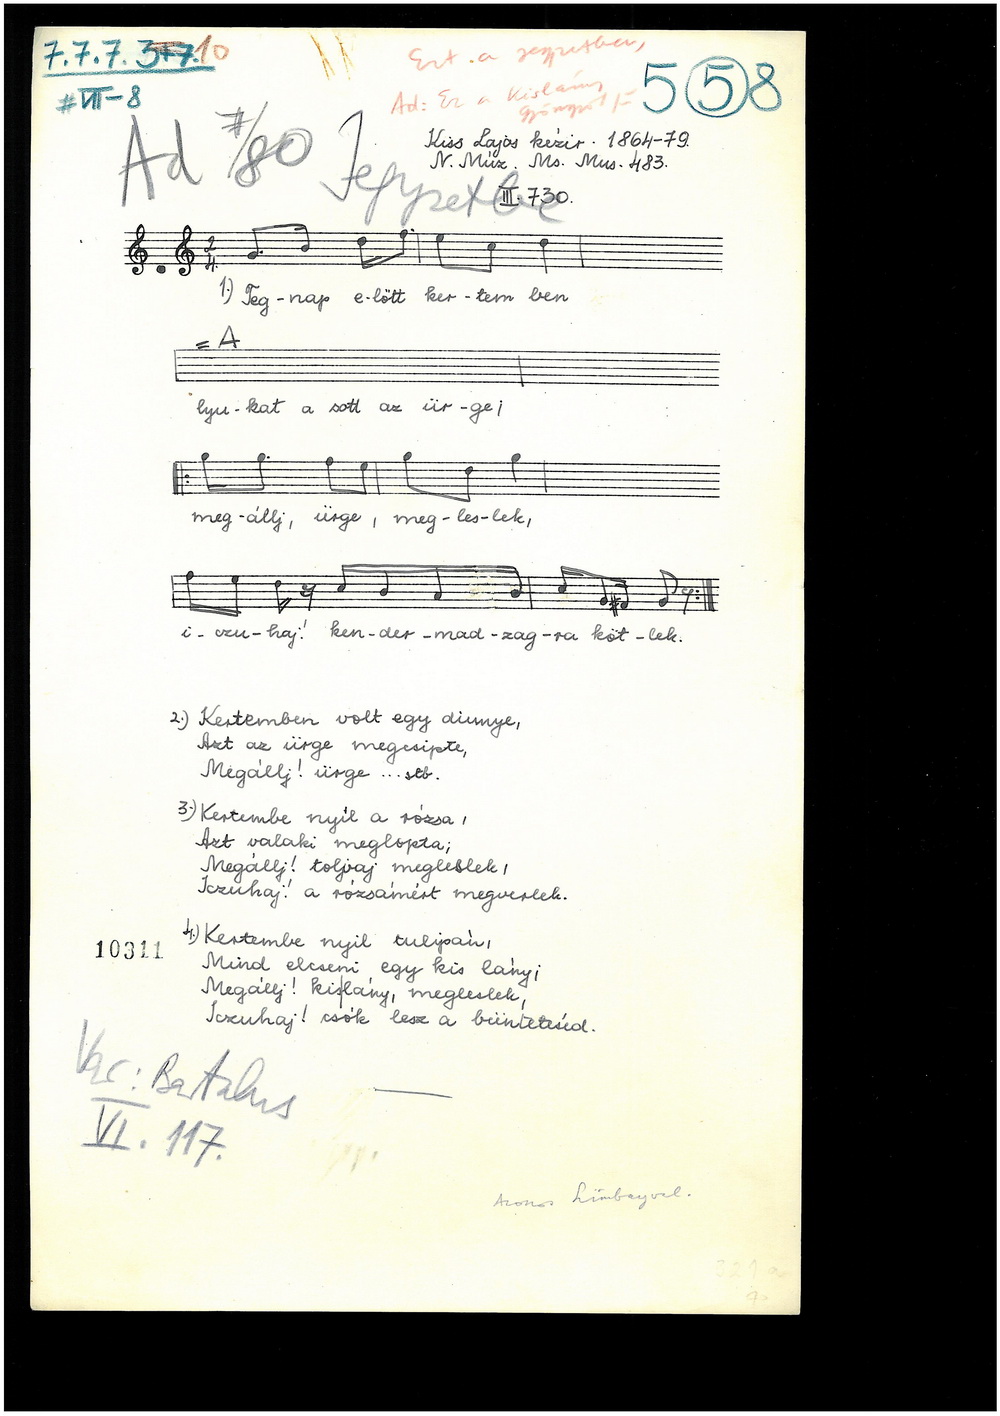 7.7.7. 3+7.10
Ezt a jegyzetben,
# VII-8
Ad: Ez a kislány
gyöngyöt
558
Ad #/80 Jegyzetbe
Kiss Lajos kézir. 1864-79.
N. Múz. Ms. Mus. 483.
III. 730.
2
4
1.) Teg-nap e-lőtt ker-tem ben
= A
lyu-kat a sott az ür-ge;
meg-állj, ürge, meg-les-lek,
i-czu-haj! ken-der-mad-zag-ra köt-lek.
2.) Kertemben volt egy dinnye,
Azt az ürge megcsipte,
Megállj! ürge ... stb.
3.) Kertembe nyíl a rózsa,
Azt valaki meglopta;
Megállj! tolvaj megleslek,
Iczuhaj! a rózsámért megverlek.
4.) Kertembe nyil tulipán,
Mind elcseni egy kis lány;
Megállj! kis|lány, megleslek,
Iczuhaj! csók lesz a büntetésed.
10311
Var: Bartalus
VI. 117.
Azonos Limbayval.
321a